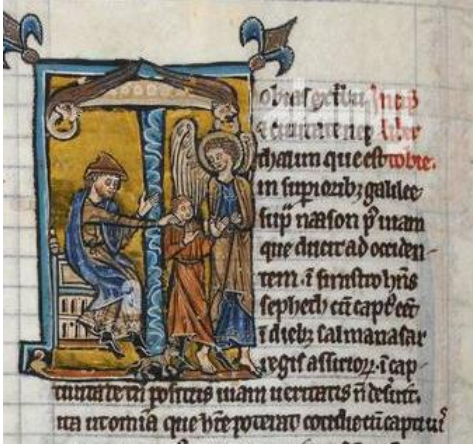 obias ex tribu Incip
& ciuitate nep liber
thalim que est tobie.
in supiorib; galilee
sup naason p' uiam
que ducit ad occiden-
tem. i sinistro hns
sepheth cu capt' eet
i dieb; salmanasar
regis assirior. i cap-
tiuitate tn positus uiam ueritatis n deseruit.
ita ut omia que hre poterat cotidie cu captiuis